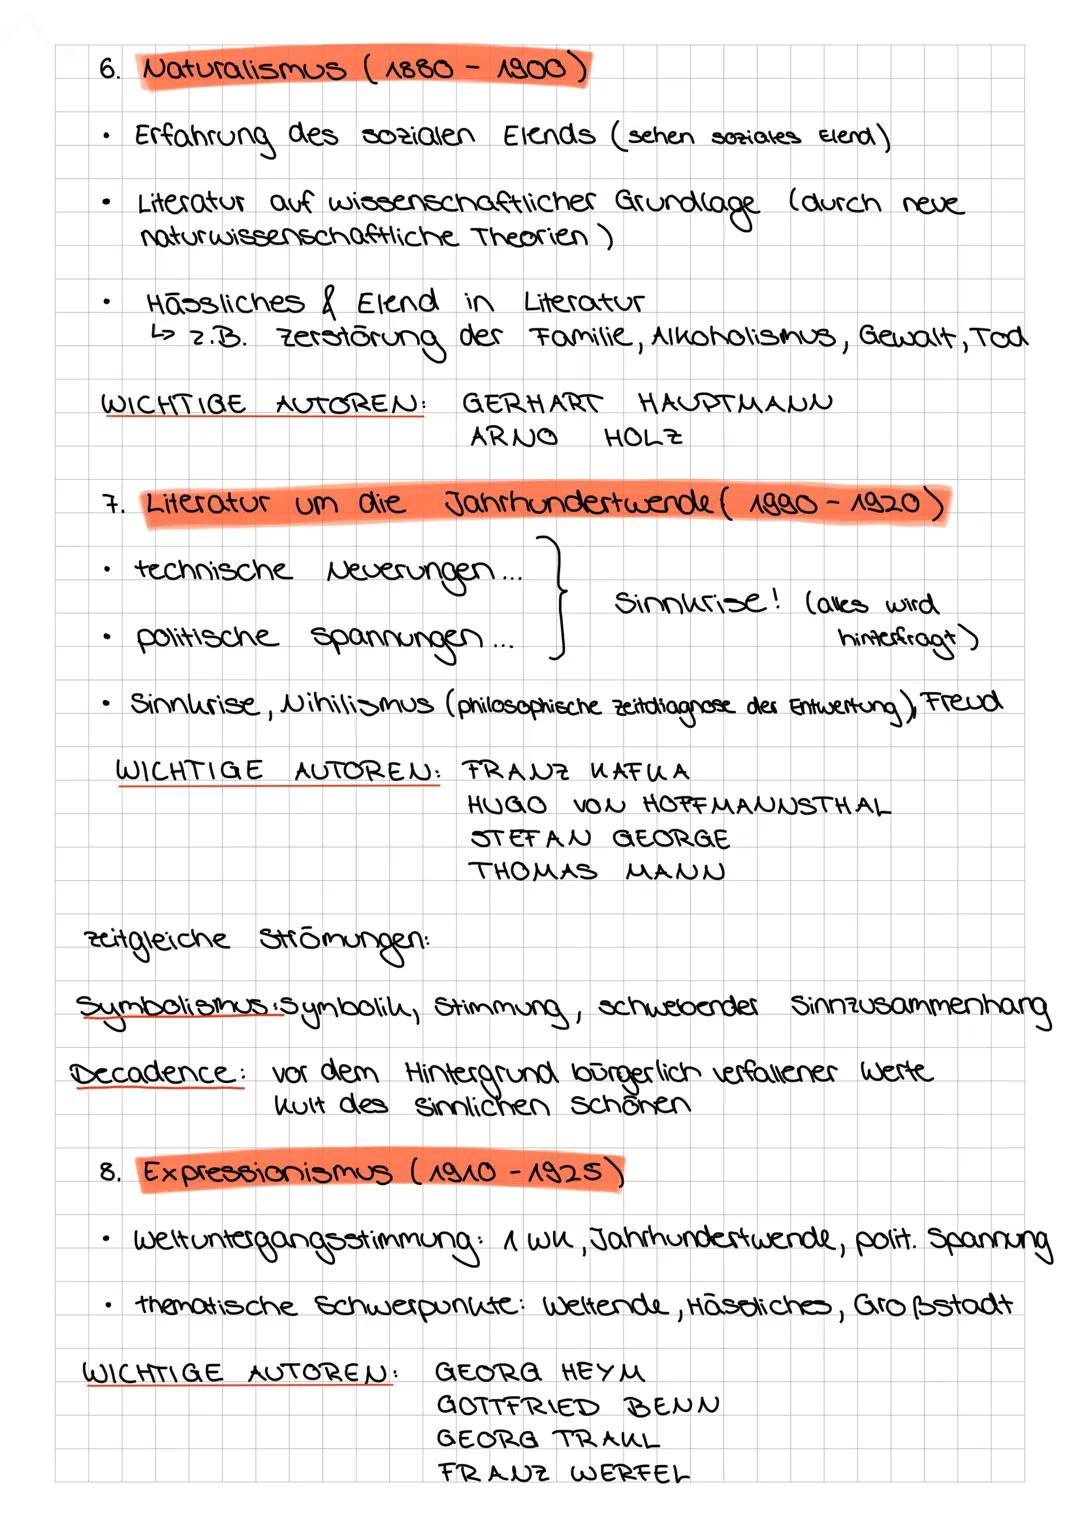 6. Naturalismus (1880 - 1900)
• Erfahrung des sozialen Elends (sehen soziales Elend)
• Literatur auf wissenschaftlicher Grundlage (durch neue
naturwissenschaftliche Theorien)
• Hässliches & Elend in Literatur
↳ z.B. Zerstörung der Familie, Alkoholismus, Gewalt, Tod
WICHTIGE AUTOREN: GERHART HAUPTMANN
ARNO HOLZ
7. Literatur um die Jahrhundertwende (1990 - 1920)
• technische Neuerungen...
Sinnkrise! (alles wird
• politische Spannungen...
hinterfragt)
• Sinnkrise, Nihilismus (philosophische Zeitdiagnose der Entwertung), Freud
WICHTIGE AUTOREN: FRANZ KAFKA
HUGO VON HOFFMANNSTHAL
STEFAN GEORGE
THOMAS MANN
zeitgleiche Strömungen:
Symbolismus: Symbolik, Stimmung, schwebender Sinnzusammenhang
Decadence: vor dem Hintergrund bürgerlich verfallener Werte
Kult des sinnlichen Schönen
8. Expressionismus (1910 - 1925)
• Weltuntergangsstimmung: 1 WK, Jahrhundertwende, polit. Spannung
• thematische Schwerpunkte: Weltende, Hässliches, Großstadt
WICHTIGE AUTOREN: GEORG HEYM
GOTTFRIED BENN
GEORG TRAKL
FRANZ WERFEL